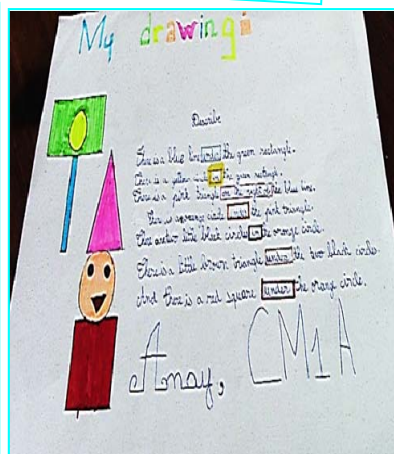 My drawing
Describe
There is a blue line under the green rectangle.
There is a yellow circle in the green rectangle.
There is a pink triangle on the right of the blue line.
There is an orange circle under the pink triangle.
There are two little black circles in the orange circle.
There is a little brown triangle under the two black circles.
And there is a red square under the orange circle.
Anay, CM1A